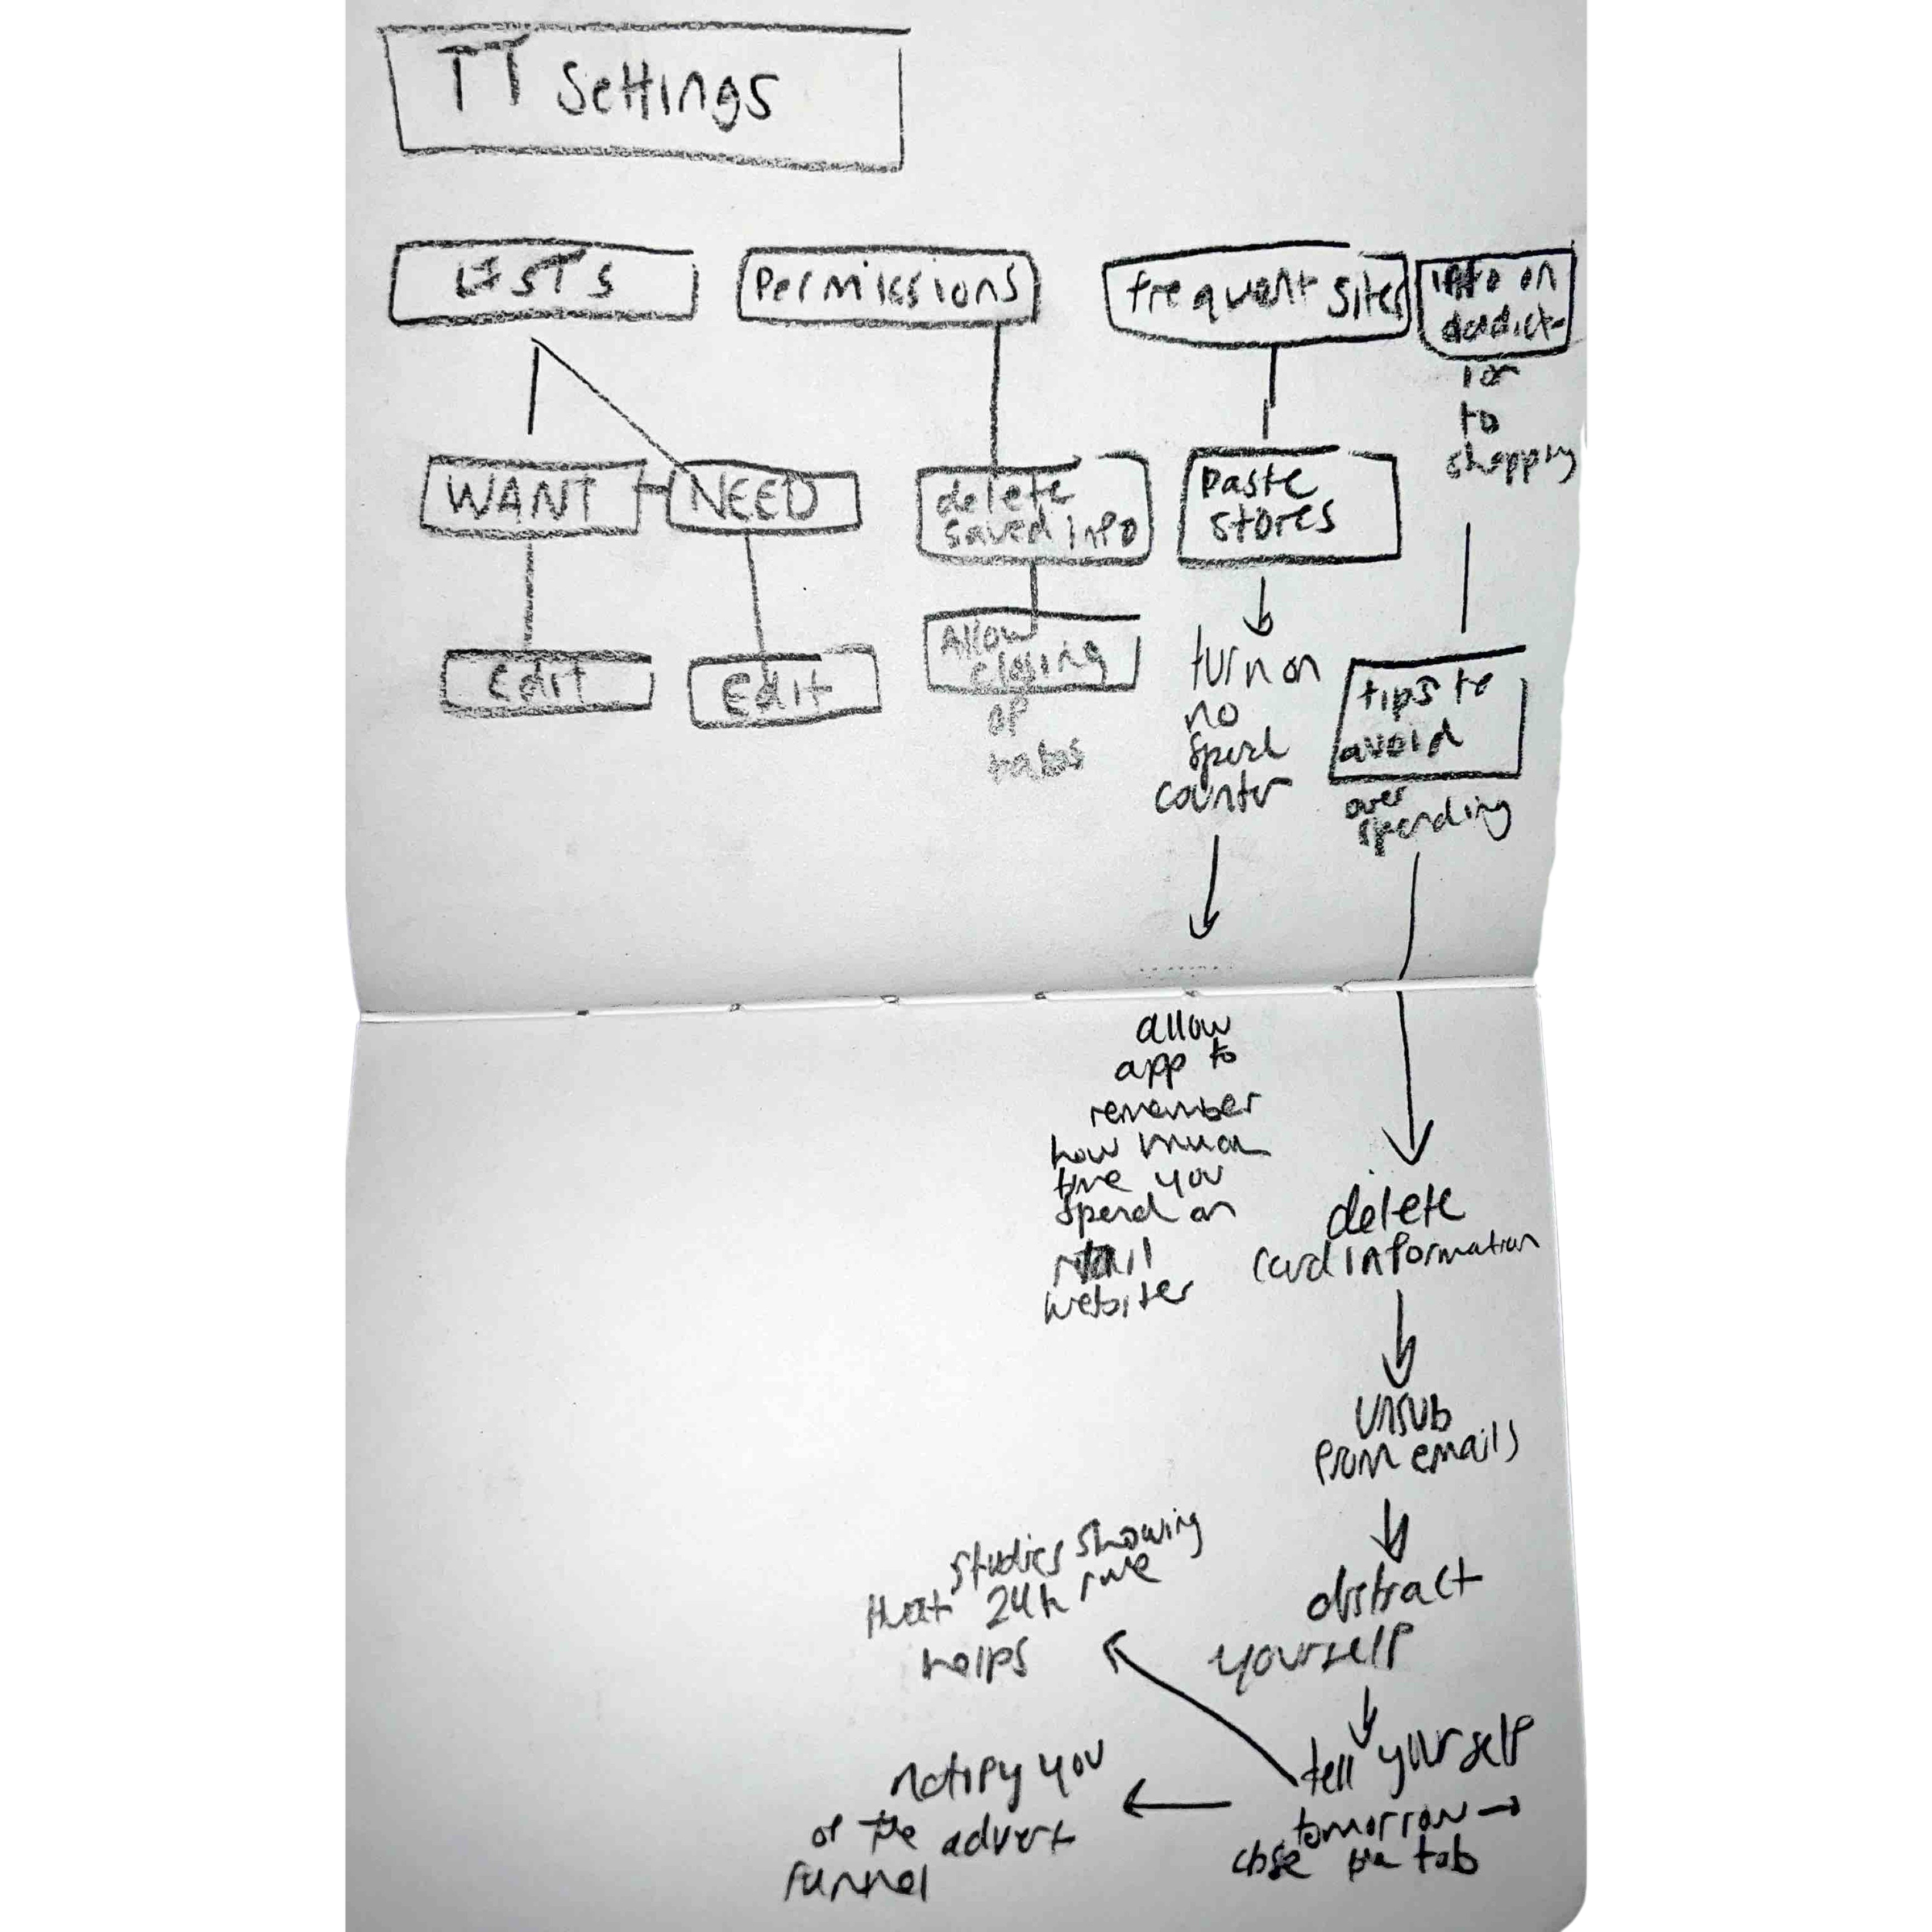 TT Settings
LISTS
Permissions
frequent sites
info on
addict-
ion
to
shopping
WANT
NEED
delete
saved info
paste
stores
Edit
Edit
Allow
closing
of
tabs
turn on
no
spend
counter
tips to
avoid
over
spending
allow
app to
remember
how much
time you
spend on
retail
websites
delete
card information
unsub
from emails
distract
yourself
tell yourself
tomorrow →
close the tab
studies showing
that 24h rule
helps
notify you
of the advert
funnel